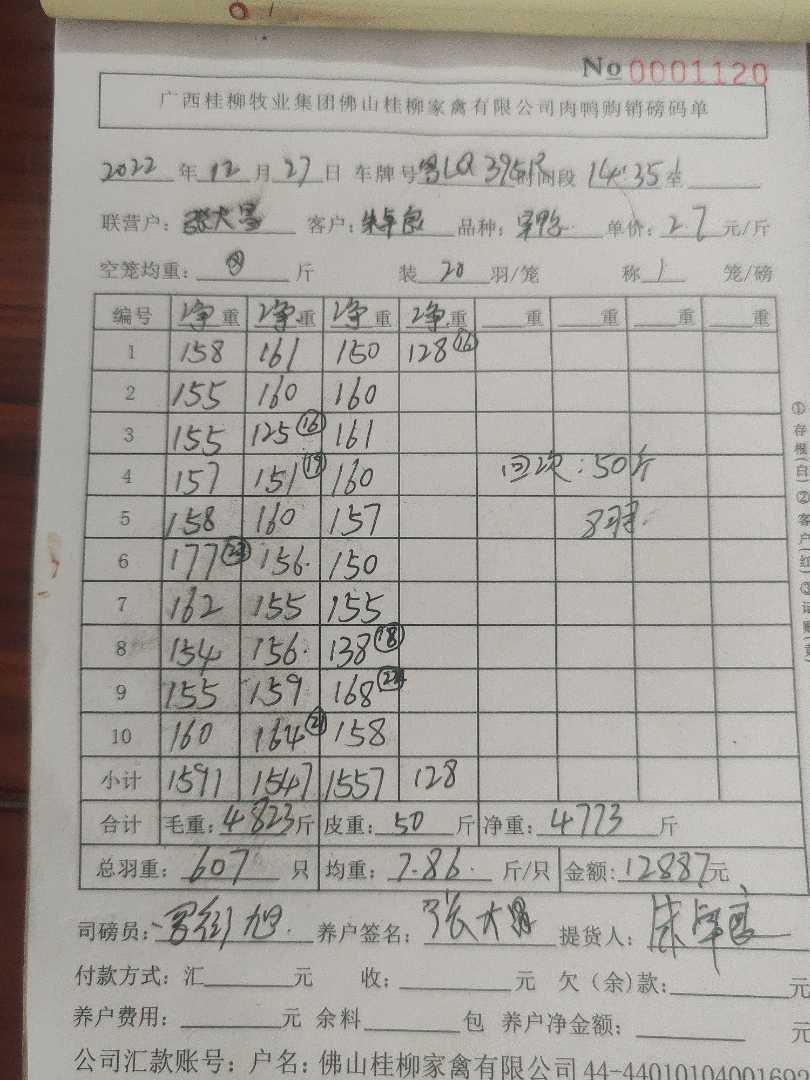 No 0001120
广西桂柳牧业集团佛山桂柳家禽有限公司肉鸭购销磅码单
2022年12月27日 车牌号 时间段 14:35至
联营户: 张大 客户: 朱卓良 品种: 单价: 2.7元/斤
空笼均重: 斤 装20羽/笼 称1笼/磅
编号 净重 净重 净重 净重 重 重 重 重
1 158 161 150 128⑯
2 155 160 160
3 155 125⑯ 161
4 157 151⑲ 160 回次:50斤
5 158 160 157 8羽
6 177 156 150
7 162 155 155
8 154 156 138⑱
9 155 159 168
10 160 164㉑ 158
小计 1591 1547 1557 128
合计 毛重:4823斤 皮重:50斤 净重:4773斤
总羽重:607只 均重:7.86斤/只 金额:12887元
司磅员: 旭 养户签名: 张大 提货人: 朱卓良
付款方式:汇 元 收: 元 欠(余)款: 元
养户费用: 元 余料 包 养户净金额: 元
公司汇款账号:户名:佛山桂柳家禽有限公司 44-440101040016
①存根(白)②客户(红)③记账(黄)